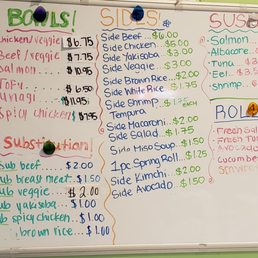 BOWLS!
Chicken/veggie $6.75
Beef/veggie $7.75
Salmon $10.95
Tofu $6.50
Unagi $11.95
Spicy chicken $7.95
Substitution!
Sub beef... $2.00
Sub breast meat. $1.50
Sub veggie... $2.00
Sub yakisoba $1.00
Sub spicy chicken.. $1.00
brown rice... $1.00
SIDES
Side Beef... $6.00
Side Chicken.. $5.00
Side Yakisoba $3.00
Side Veggie.. $3.00
Side Brown Rice.. $2.50
Side White Rice $1.75
Side Shrimp... $1.75
Tempura
Side Macaroni.. $2.00
Side Salad... $1.75
Side Miso Soup.. $1.50
1pc Spring Roll.. $1.25
Side Kimchi.. $2.00
Side Avocado.. $1.50
SUS
-Salmon
-Albacore
-Tuna $3
-Eel.. $3.5
-shrimp
ROLL
Tuna
AVOCADO
Cucumber